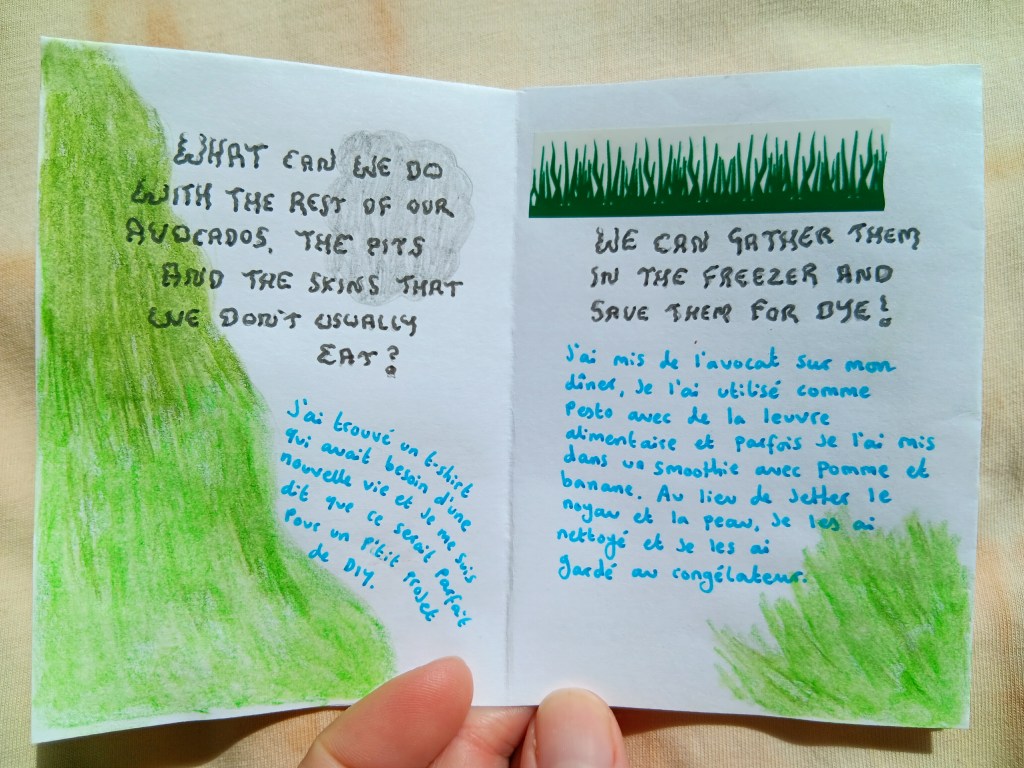 WHAT CAN WE DO
WITH THE REST OF OUR
AVOCADOS, THE PITS
AND THE SKINS THAT
WE DON'T USUALLY
EAT?
J'ai trouvé un t-shirt
qui avait besoin d'une
nouvelle vie et je me suis
dit que ce serait parfait
pour un p'tit projet
de DIY.
WE CAN GATHER THEM
IN THE FREEZER AND
SAVE THEM FOR DYE!
J'ai mis de l'avocat sur mon
dîner, je l'ai utilisé comme
pesto avec de la leuvre
alimentaire et parfois je l'ai mis
dans un smoothie avec pomme et
banane. Au lieu de jetter le
noyau et la peau, je les ai
nettoyé et je les ai
gardé au congélateur.